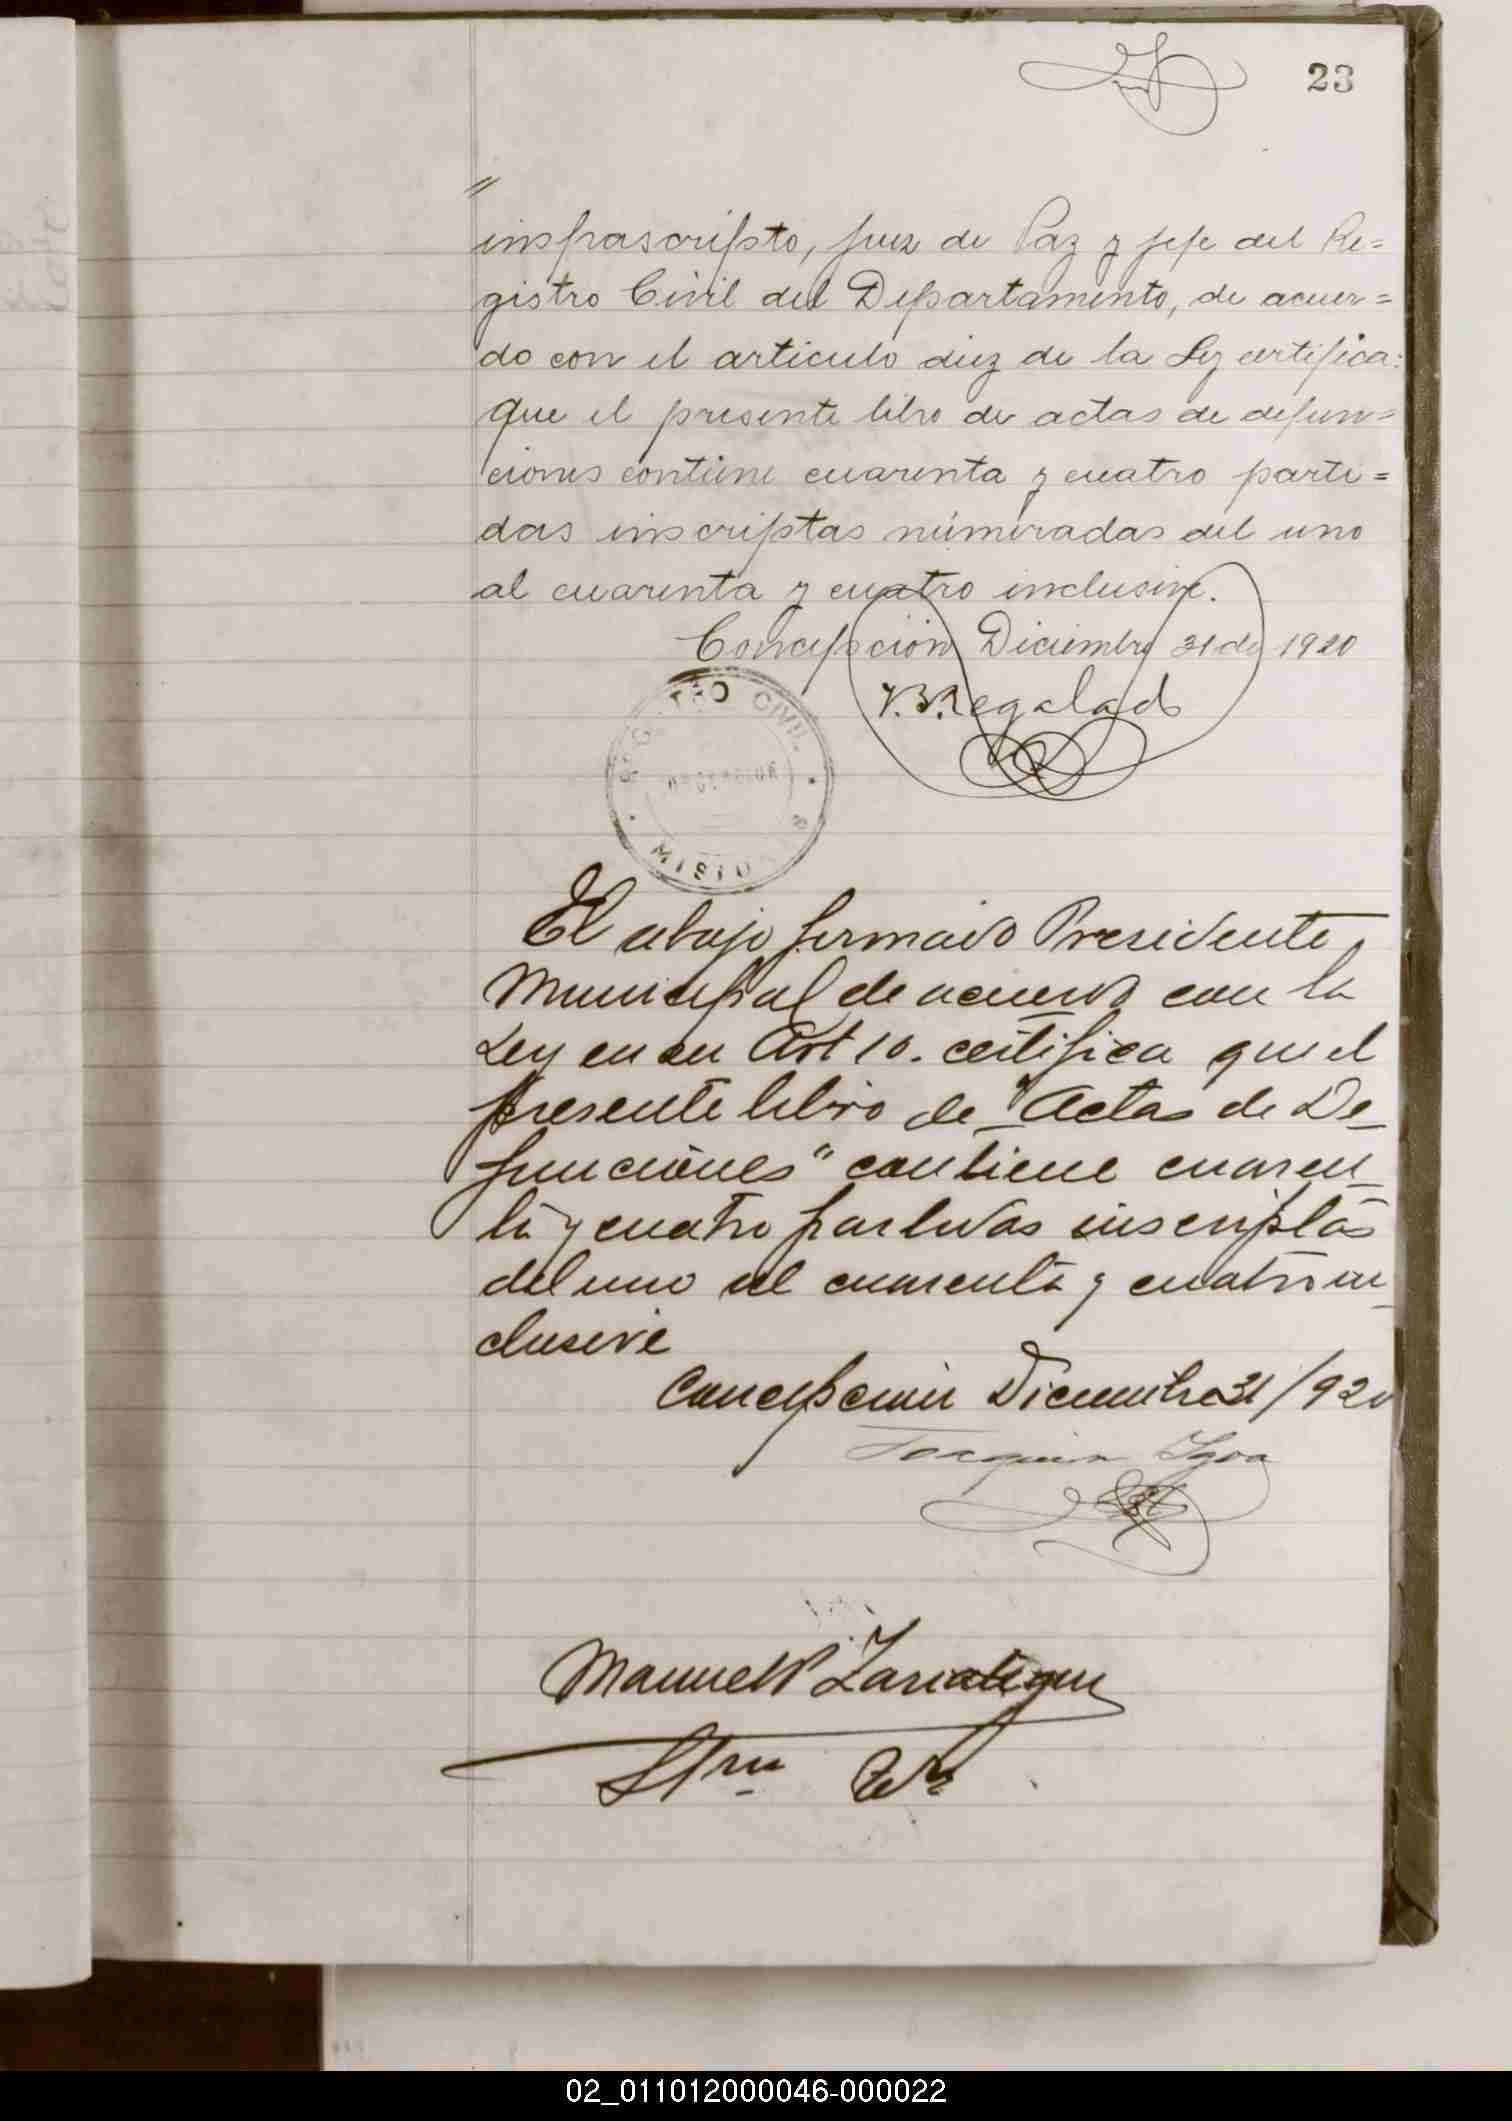 23
"
infrascripto, Juez de Paz y jefe del Re=
gistro Civil del Departamento, de acuer=
do con el articulo diez de la Ley certifica:
que el presente libro de actas de defun=
ciones contiene cuarenta y cuatro parti=
das inscriptas númeradas del uno
al cuarenta y cuatro inclusive.
Concepción Diciembre 31 de 1920
V.B.Regalado
REGISTRO CIVIL
MISIONES
El abajo firmado Presidente
Municipal de acuerdo con la
Ley en su Art 10. certifica que el
presente libro de "Actas de De_
funciónes" contiene cuaren_
ta y cuatro partidas inscriptas
del uno al cuarenta y cuatro in_
clusive
Concepcion Diciembre 31/920
Joaquin Ygoa
Manuel Zariategui
02_011012000046-000022